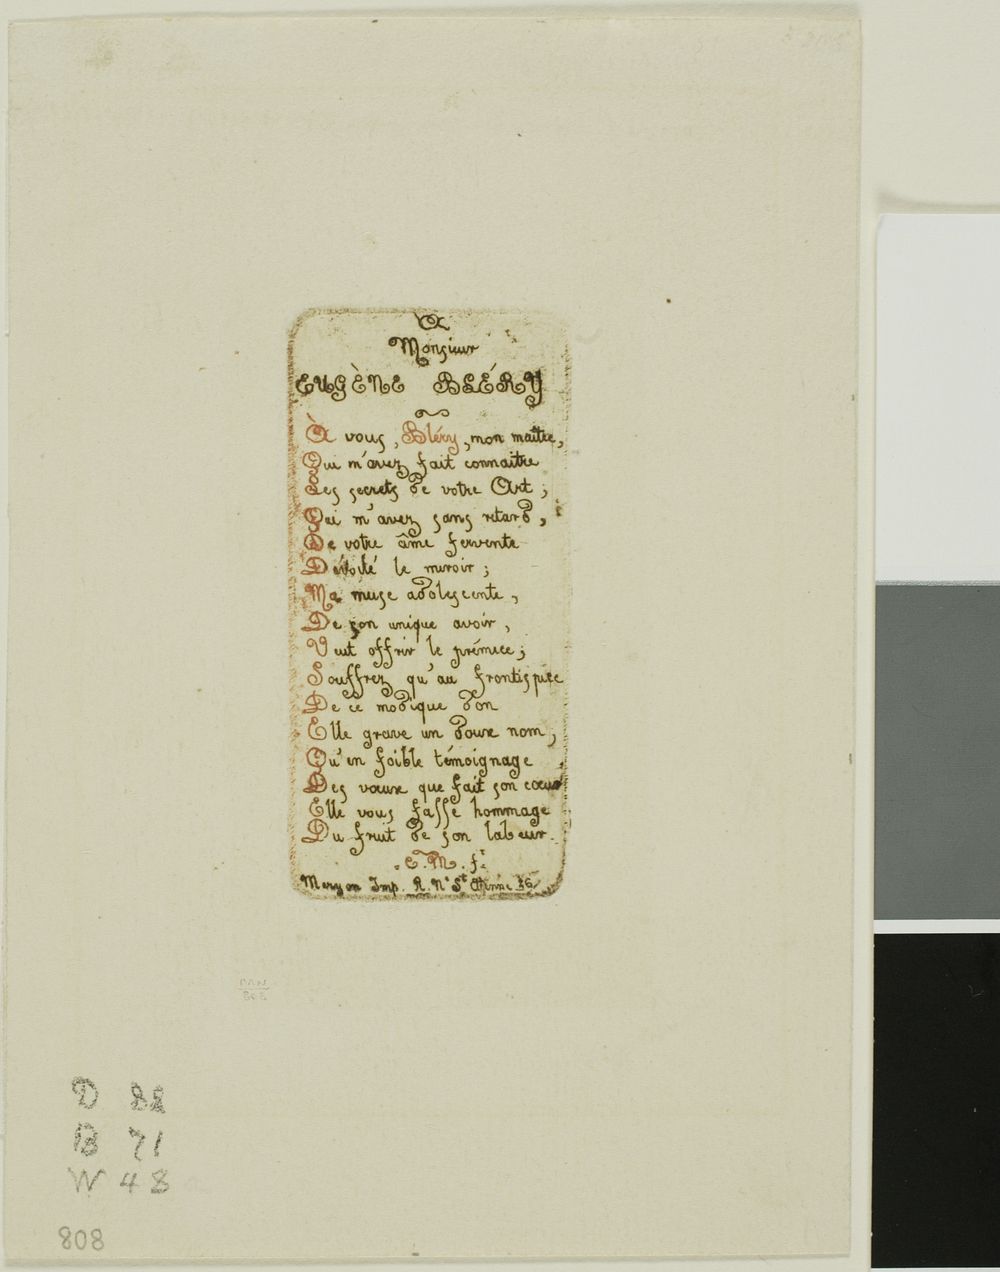 A
Monsieur
EUGÈNE BLÉRY
À vous, Bléry, mon maître,
Qui m'avez fait connaître
Les secrets de votre Art ;
Qui m'avez sans retard,
De votre âme fervente
Dévoilé le miroir ;
Ma muse adolescente,
De son unique avoir,
Veut offrir le prémice ;
Souffrez qu'au frontispice
De ce modique don
Elle grave un doux nom ;
Qu'en foible témoignage
Des vœux que fait son cœur
Elle vous fasse hommage
Du fruit de son labeur.
.C.M. f.
Meryon Imp. R. Nve St Etienne 26
D 88
B 71
W 48
808